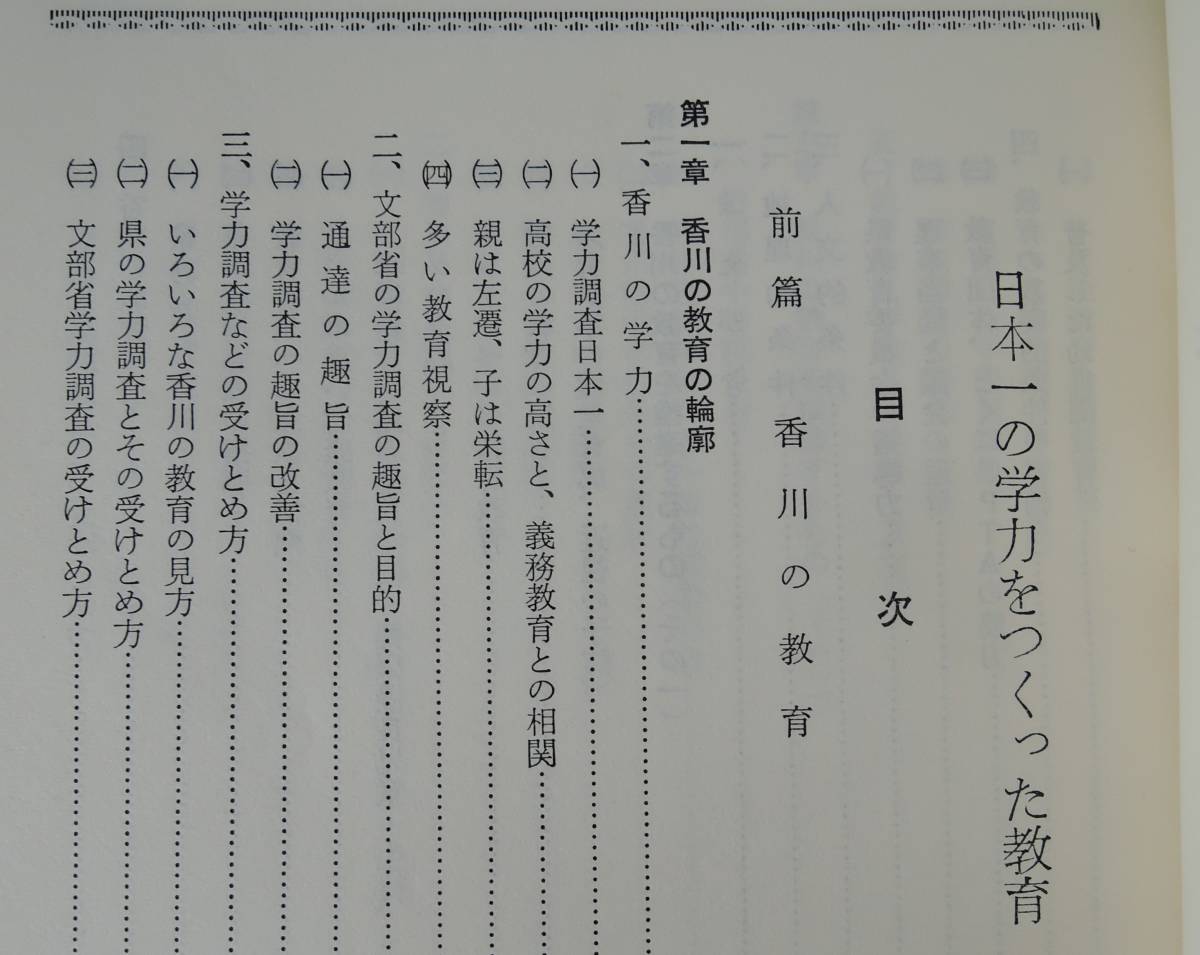 日本一の学力をつくった教育
目次
前篇 香川の教育
第一章 香川の教育の輪廓
一、香川の学力……
㈠ 学力調査日本一……
㈡ 高校の学力の高さと、義務教育との相関……
㈢ 親は左遷、子は栄転……
㈣ 多い教育視察……
二、文部省の学力調査の趣旨と目的……
㈠ 通達の趣旨……
㈡ 学力調査の趣旨の改善……
三、学力調査などの受けとめ方……
㈠ いろいろな香川の教育の見方……
㈡ 県の学力調査とその受けとめ方……
㈢ 文部省学力調査の受けとめ方……